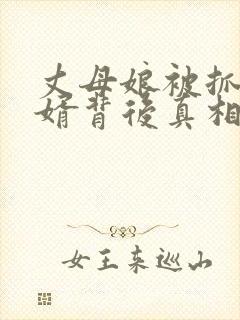 丈母娘被抓
婿背后真相
女王来巡山